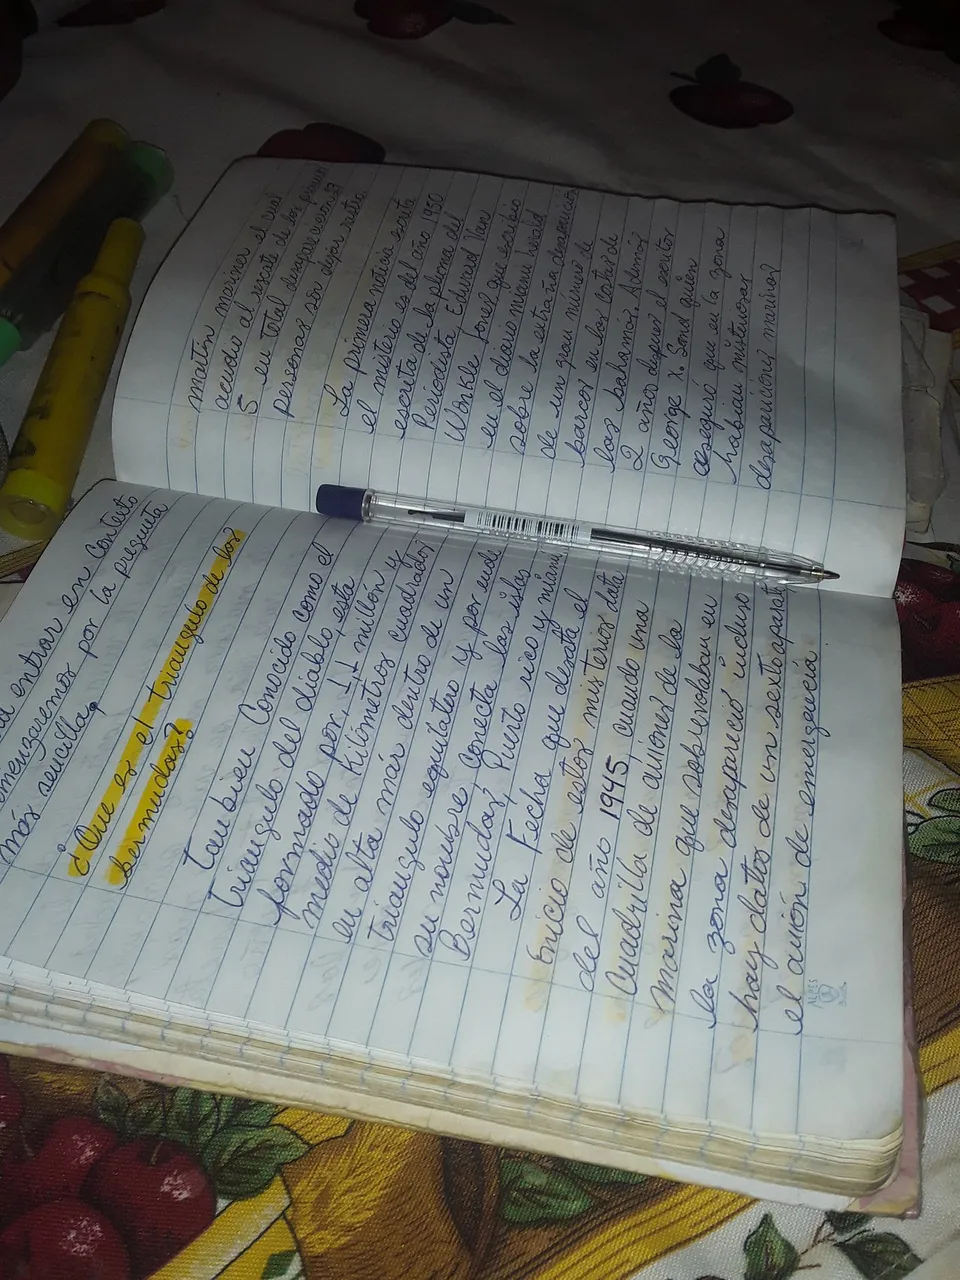 entrar en contexto
comenzaremos por la pregunta
más sencilla,
¿Que es el triangulo de las
bermudas?
Tambien conocido como el
Triangulo del diablo, esta
formado por 1,1 millón y
medio de kilometros cuadrados
en alta mar dentro de un
triangulo equilatero y por ende
su nombre conecta las islas
Bermudas, Puerto rico y miami
La Fecha que desata el
Inicio de estos misterios data
del año 1945 cuando una
Cuadrilla de aviones de la
marina que sobrevolaban en
la zona desaparecio incluso
hay datos de un sexto aparato
el avión de emergencia.
ALPES
maten mariner el cual
acudio al rescate de los primeros
5 en total desaparecieron 27
personas sin dejar rastro.
La primera noticia sobre
el misterio es del año 1950
escrita de la pluma del
Periodista Edward Van
Winkle Jones que escribio
en el diario miami herald
sobre la extraña desaparicion
de un gran numero de
barcos en las costas de
las bahamas. Ademas
2 años despues el escritor
George X. Sand quien
aseguró que en la zona
habian misteriosas
desapariciones marinas